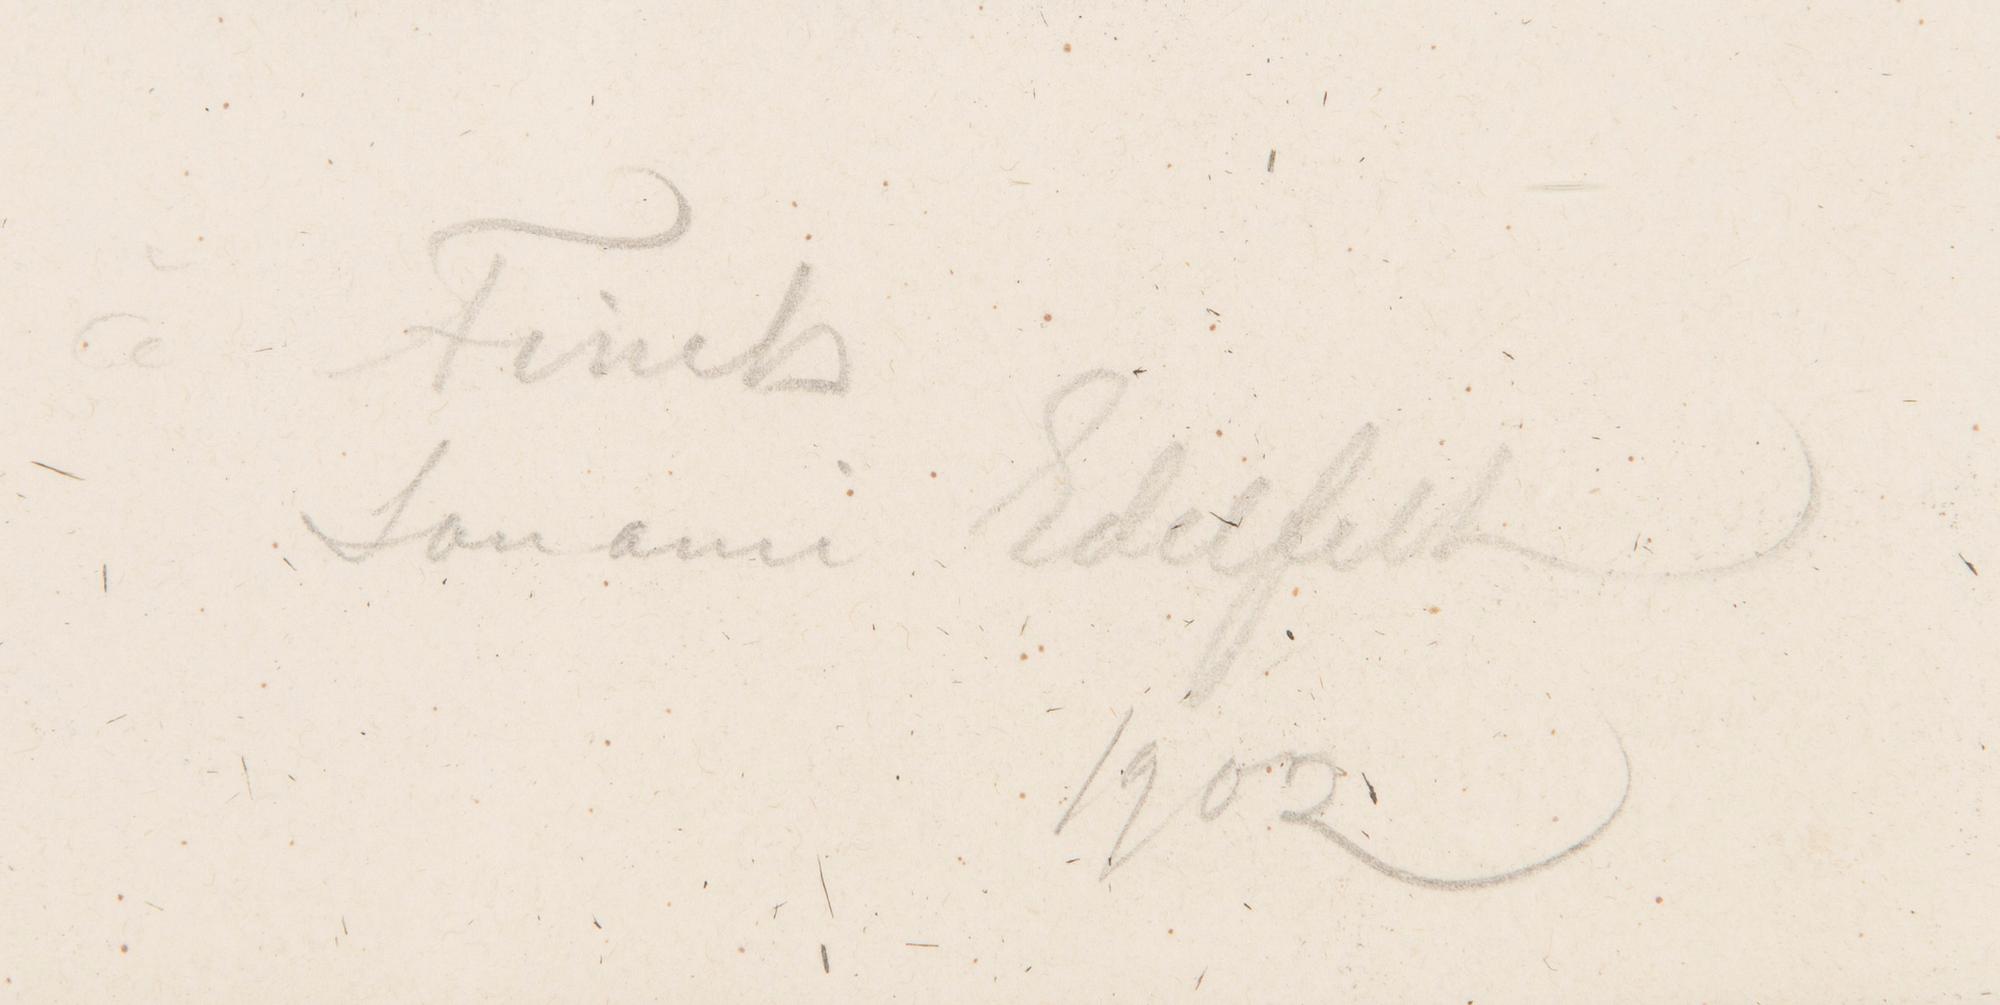 à Finch
Son ami Edelfelt
1902